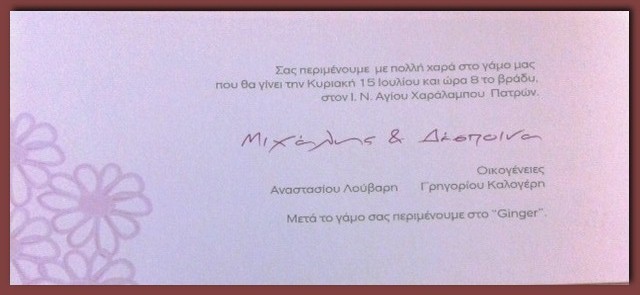 Σας περιμένουμε με πολλή χαρά στο γάμο μας
που θα γίνει την Κυριακή 15 Ιουλίου και ώρα 8 το βράδυ,
στον Ι. Ν. Αγίου Χαράλαμπου Πατρών.
Μιχάλης & Δέσποινα
Οικογένειες
Αναστασίου Λούβαρη Γρηγορίου Καλογέρη
Μετά το γάμο σας περιμένουμε στο "Ginger".